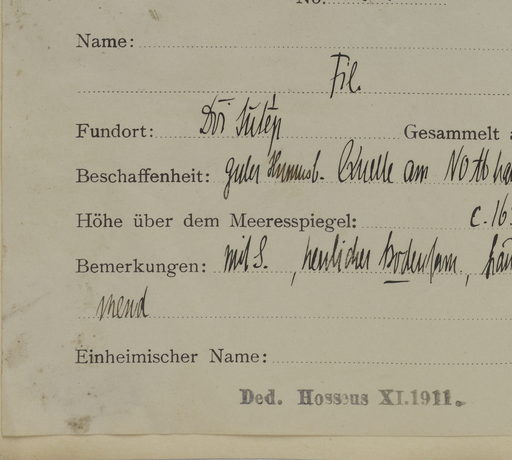 No.
Name:
Fil.
Fundort: Doi Sutep Gesammelt a
Beschaffenheit: guter Humusb. Quelle am
Höhe über dem Meeresspiegel: c. 16
Bemerkungen: mit S., herrlicher Bodenfarn,
mend
Einheimischer Name:
Ded. Hosseus XI.1911.